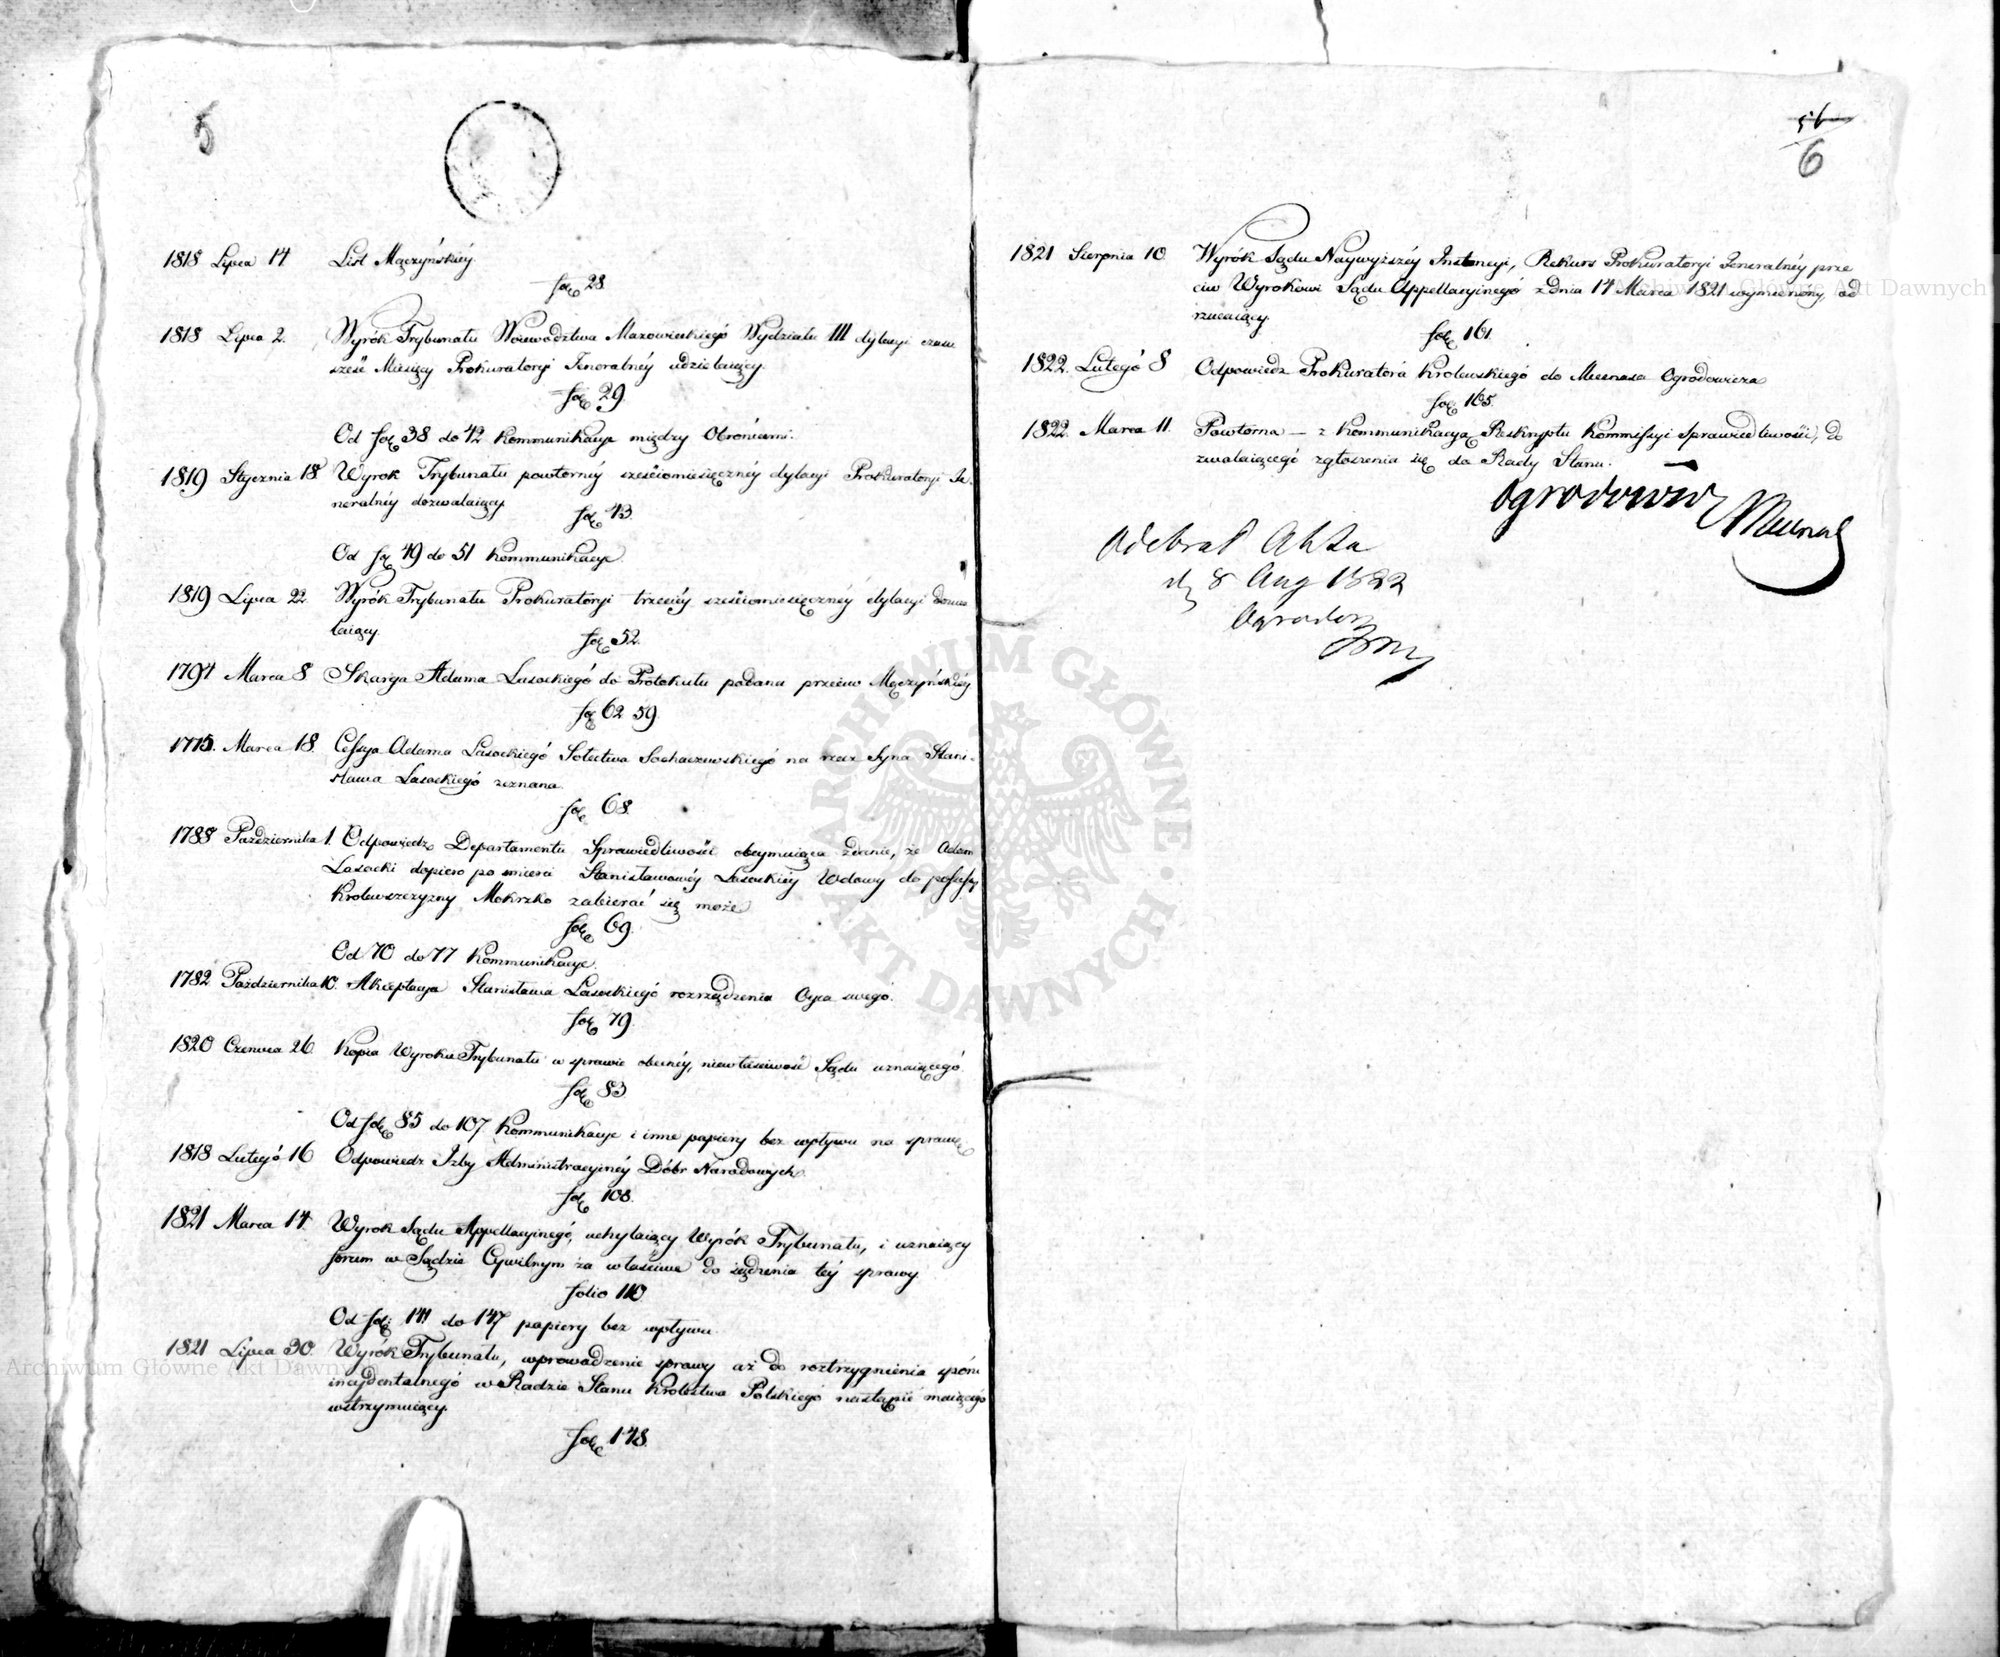 5
1818 Lipca 14 List Mączyńskiéy.
fol. 28.
1818 Lipca 2. Wyrók Trybunału Woiewodztwa Mazowieckiégo Wydziału III dylacyi czasu
sześć Miesięcy Prokuratoryi Jeneralnéy udzielaiący.
fol. 29.
Od fol. 38 do 42 Kommunikacye między Obrońcami.
1819 Stycznia 18 Wyrok Trybunału powtórnéy sześciomiesięcznéy dylacyi Prokuratoryi Je-
neralnéy dozwalaiący.
fol. 43.
Od fol. 49 do 51 Kommunikacye.
1819 Lipca 22 Wyrók Trybunału Prokuratoryi trzeciéy sześciomiesięcznéy dylacyi dozwa
laiący.
fol. 52.
1794 Marca 8 Skarga Adama Lasockiégo do Protokułu podana przeciw Mączyńskiéy
fol. 62 59.
1775. Marca 18. Cessya Adama Lasockiégo Sołectwa Sochaczewskiégo na rzecz Syna Stani-
sława Lasockiégo zeznana.
fol. 68.
1788 Października 1. Odpowiedz Departamentu Sprawiedliwości obeymuiąca zdanie, że Adam
Lasocki dopiero po śmierci Stanisławowéy Lasockiéy Wdowy do possessyi
Krolewszczyzny Mokrzko zabierać się może
fol. 69.
Od 70 do 77 Kommunikacye.
1782 Października 10. Akceptacya Stanisława Lasockiégo rozrządzenia Oyca swego.
fol. 79.
1820 Czerwca 26 Kopia Wyroku Trybunału w sprawie obecnéy, niewłaściwość Sądu uznaiącégo.
fol. 83
Od fol. 85 do 107 Kommunikacye i inne papiery bez wpływu na sprawę
1818 Lutégo 16 Odpowiedz Izby Administracyinéy Dóbr Narodowych.
fol. 108.
1821 Marca 14. Wyrok Sądu Appellacyinégo, uchylaiący Wyrók Trybunału, i uznaiący
forum w Sądzie Cywilnym za właściwe do sądzenia téy sprawy.
folio 110
Od fol: 141 do 147 papiery bez wpływu.
1821 Lipca 30 Wyrók Trybunału, wprowadzenie sprawy aż do roztrzygnienia sporu
incydentalnégo w Radzie Stanu Krolestwa Polskiego nastąpić maiącégo
wstrzymuiący.
fol. 148.
6
1821 Sierpnia 10 Wyrók Sądu Naywyższéy Instancyi, Rekurs Prokuratoryi Jeneralnéy prze
ciw Wyrokowi Sądu Appellacyinégo z dnia 14 Marca 1821 wymieniony od
rzucaiący.
fol. 161.
1822. Lutégo 8 Odpowiedz Prokuratora Krolewskiégo do Mecenasa Ogrodowicza
fol. 165.
1822. Marca 11. Powtórna — z kommunikacyą Reskryptu Kommissyi Sprawiedliwości, do
zwalaiącégo zgłoszenia się do Rady Stanu.
Ogrodowicz Mecenas
Odebrał Akta
d. 8 Aug 1822
ARCHIWUM GŁÓWNE AKT DAWNYCH
Archiwum Główne Akt Dawnych
Archiwum Główne Akt Dawnych